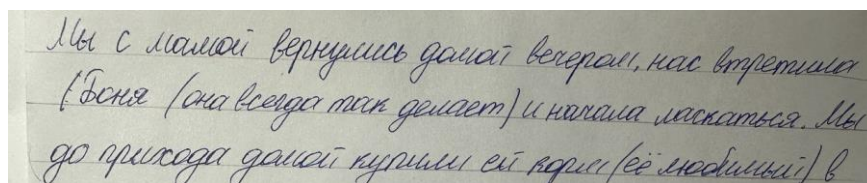 Мы с мамой вернулись домой вечером, нас втретила
(Боня (она всегда так делает) и начала ласкаться. Мы
до прихода домой купили ей корм (её любимый) в